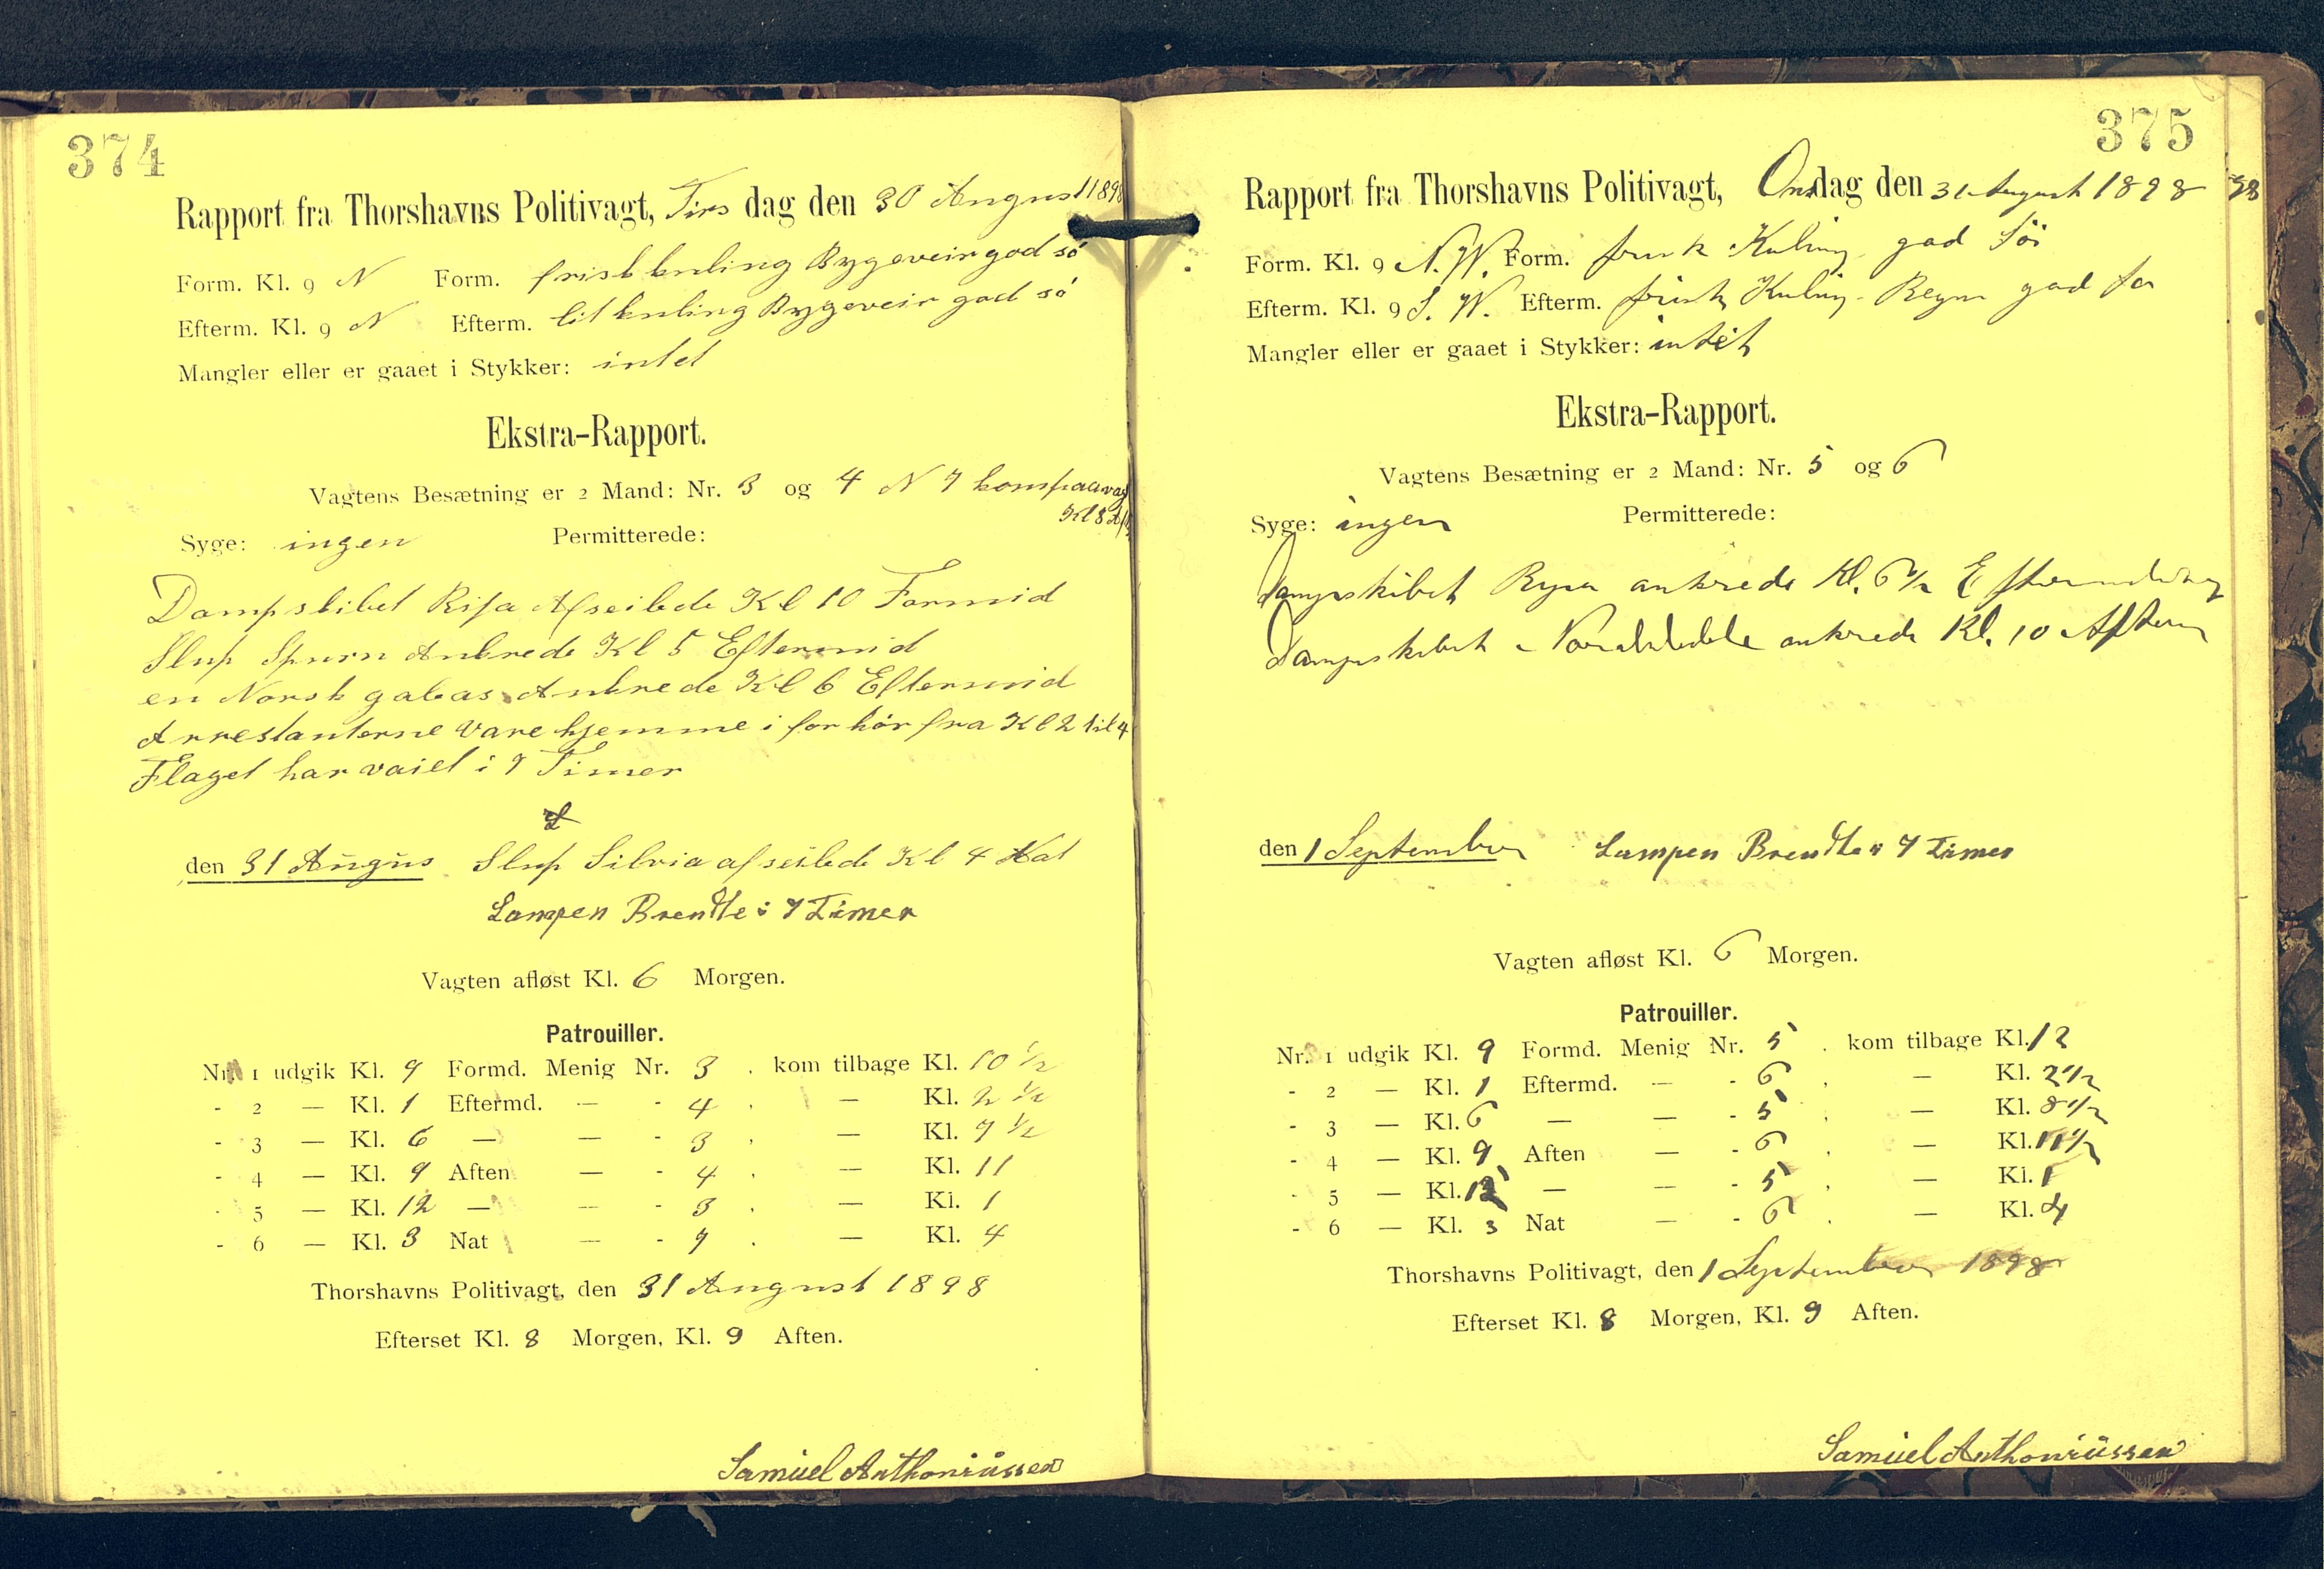 374
Rapport fra Thorshavns Politivagt, Tirs dag den 30 August 1898
Form. Kl. 9 N Form. frisk kuling Bygeveir god sö
Efterm. Kl. 9 N Efterm. lit kuling Bygeveir god sö
Mangler eller er gaaet i Stykker: intet
Ekstra-Rapport.
Vagtens Besætning er 2 Mand: Nr. 3 og 4 N 7 kom paa vagt
Kl 8 Aft
Syge: ingen Permitterede:
Dampskibet Ripa Afseilede Kl 10 Formid
Slup Spurn Ankrede Kl 5 Eftermid
en Norsk galeas Ankrede Kl 6 Eftermid
Arrestanterne vare hjemme i forhör fra Kl 2 til 4
Flaget har vaiet i 9 Timer
den 31 Augus Slup Silvia afseilede Kl 4 Nat
Lampen Brendte i 7 Timer
Vagten afløst Kl. 6 Morgen.
Patrouiller.
Nr. 1 udgik Kl. 9 Formd. Menig Nr. 3 . kom tilbage Kl. 10 1/2
- 2 — Kl. 1 Eftermd. — - 4 . — Kl. 2 1/2
- 3 — Kl. 6 — — - 3 . — Kl. 7 1/2
- 4 — Kl. 9 Aften — - 4 . — Kl. 11
- 5 — Kl. 12 — — - 3 . — Kl. 1
- 6 — Kl. 3 Nat — - 7 . — Kl. 4
Thorshavns Politivagt, den 31 August 1898
Efterset Kl. 8 Morgen, Kl. 9 Aften.
Samüel Anthoniüssen
375
Rapport fra Thorshavns Politivagt, Onsdag den 31 August 1898
98
Form. Kl. 9 N.W. Form. frisk Kuling god Söi
Efterm. Kl. 9 S. W. Efterm. frisk Kuling - Regn god
Mangler eller er gaaet i Stykker: intet
Ekstra-Rapport.
Vagtens Besætning er 2 Mand: Nr. 5 og 6
Syge: ingen Permitterede:
Dampskibet Rypa ankrede Kl. 6 1/2 Eftermiddag
Dampskibet ankrede Kl. 10 Aften
den 1 September Lampen Brendte i 7 Timer
Vagten afløst Kl. 6 Morgen.
Patrouiller.
Nr. 1 udgik Kl. 9 Formd. Menig Nr. 5 . kom tilbage Kl. 12
- 2 — Kl. 1 Eftermd. — - 6 . — Kl. 2 1/2
- 3 — Kl. 6 — — - 5 . — Kl. 8 1/2
- 4 — Kl. 9 Aften — - 6 . — Kl. 11 1/2
- 5 — Kl. 12 — — - 5 . — Kl. 1
- 6 — Kl. 3 Nat — - 6 . — Kl. 4
Thorshavns Politivagt, den 1 September 1898
Efterset Kl. 8 Morgen, Kl. 9 Aften.
Samüel Anthoniüssen